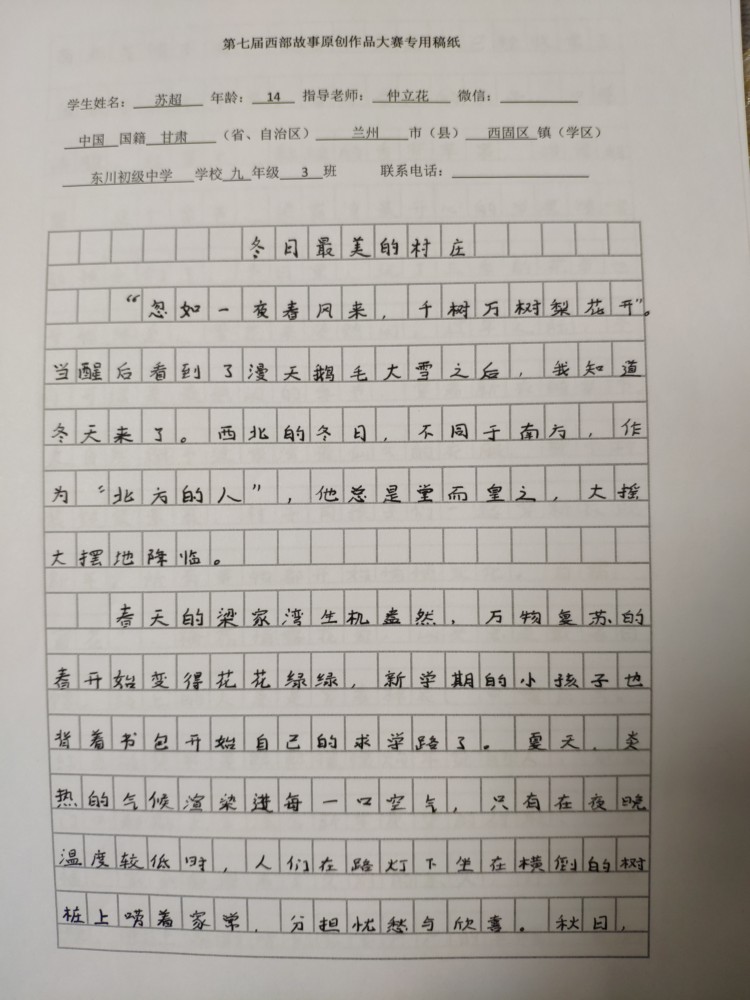 第七届西部故事原创作品大赛专用稿纸
学生姓名：苏超 年龄：14 指导老师：仲立花 微信：
中国 国籍 甘肃（省、自治区） 兰州 市（县） 西固区 镇（学区）
东川初级中学 学校 九 年级 3 班 联系电话：
冬日最美的村庄
“忽如一夜春风来，千树万树梨花开”。
当醒后看到了漫天鹅毛大雪之后，我知道
冬天来了。西北的冬日，不同于南方，作
为“北方的人”，他总是堂而皇之，大摇
大摆地降临。
春天的梁家湾生机盎然，万物复苏的
春开始变得花花绿绿，新学期的小孩子也
背着书包开始自己的求学路了。夏天，炎
热的气候渲染进每一口空气，只有在夜晚
温度较低时，人们在路灯下坐在横倒的树
桩上唠着家常，分担忧愁与欣喜。秋日，